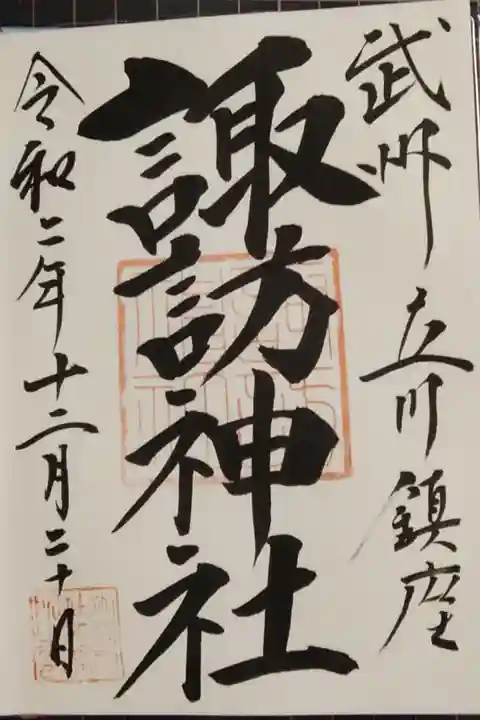 武州 立川鎮座
諏訪神社
令和二年十二月二十日